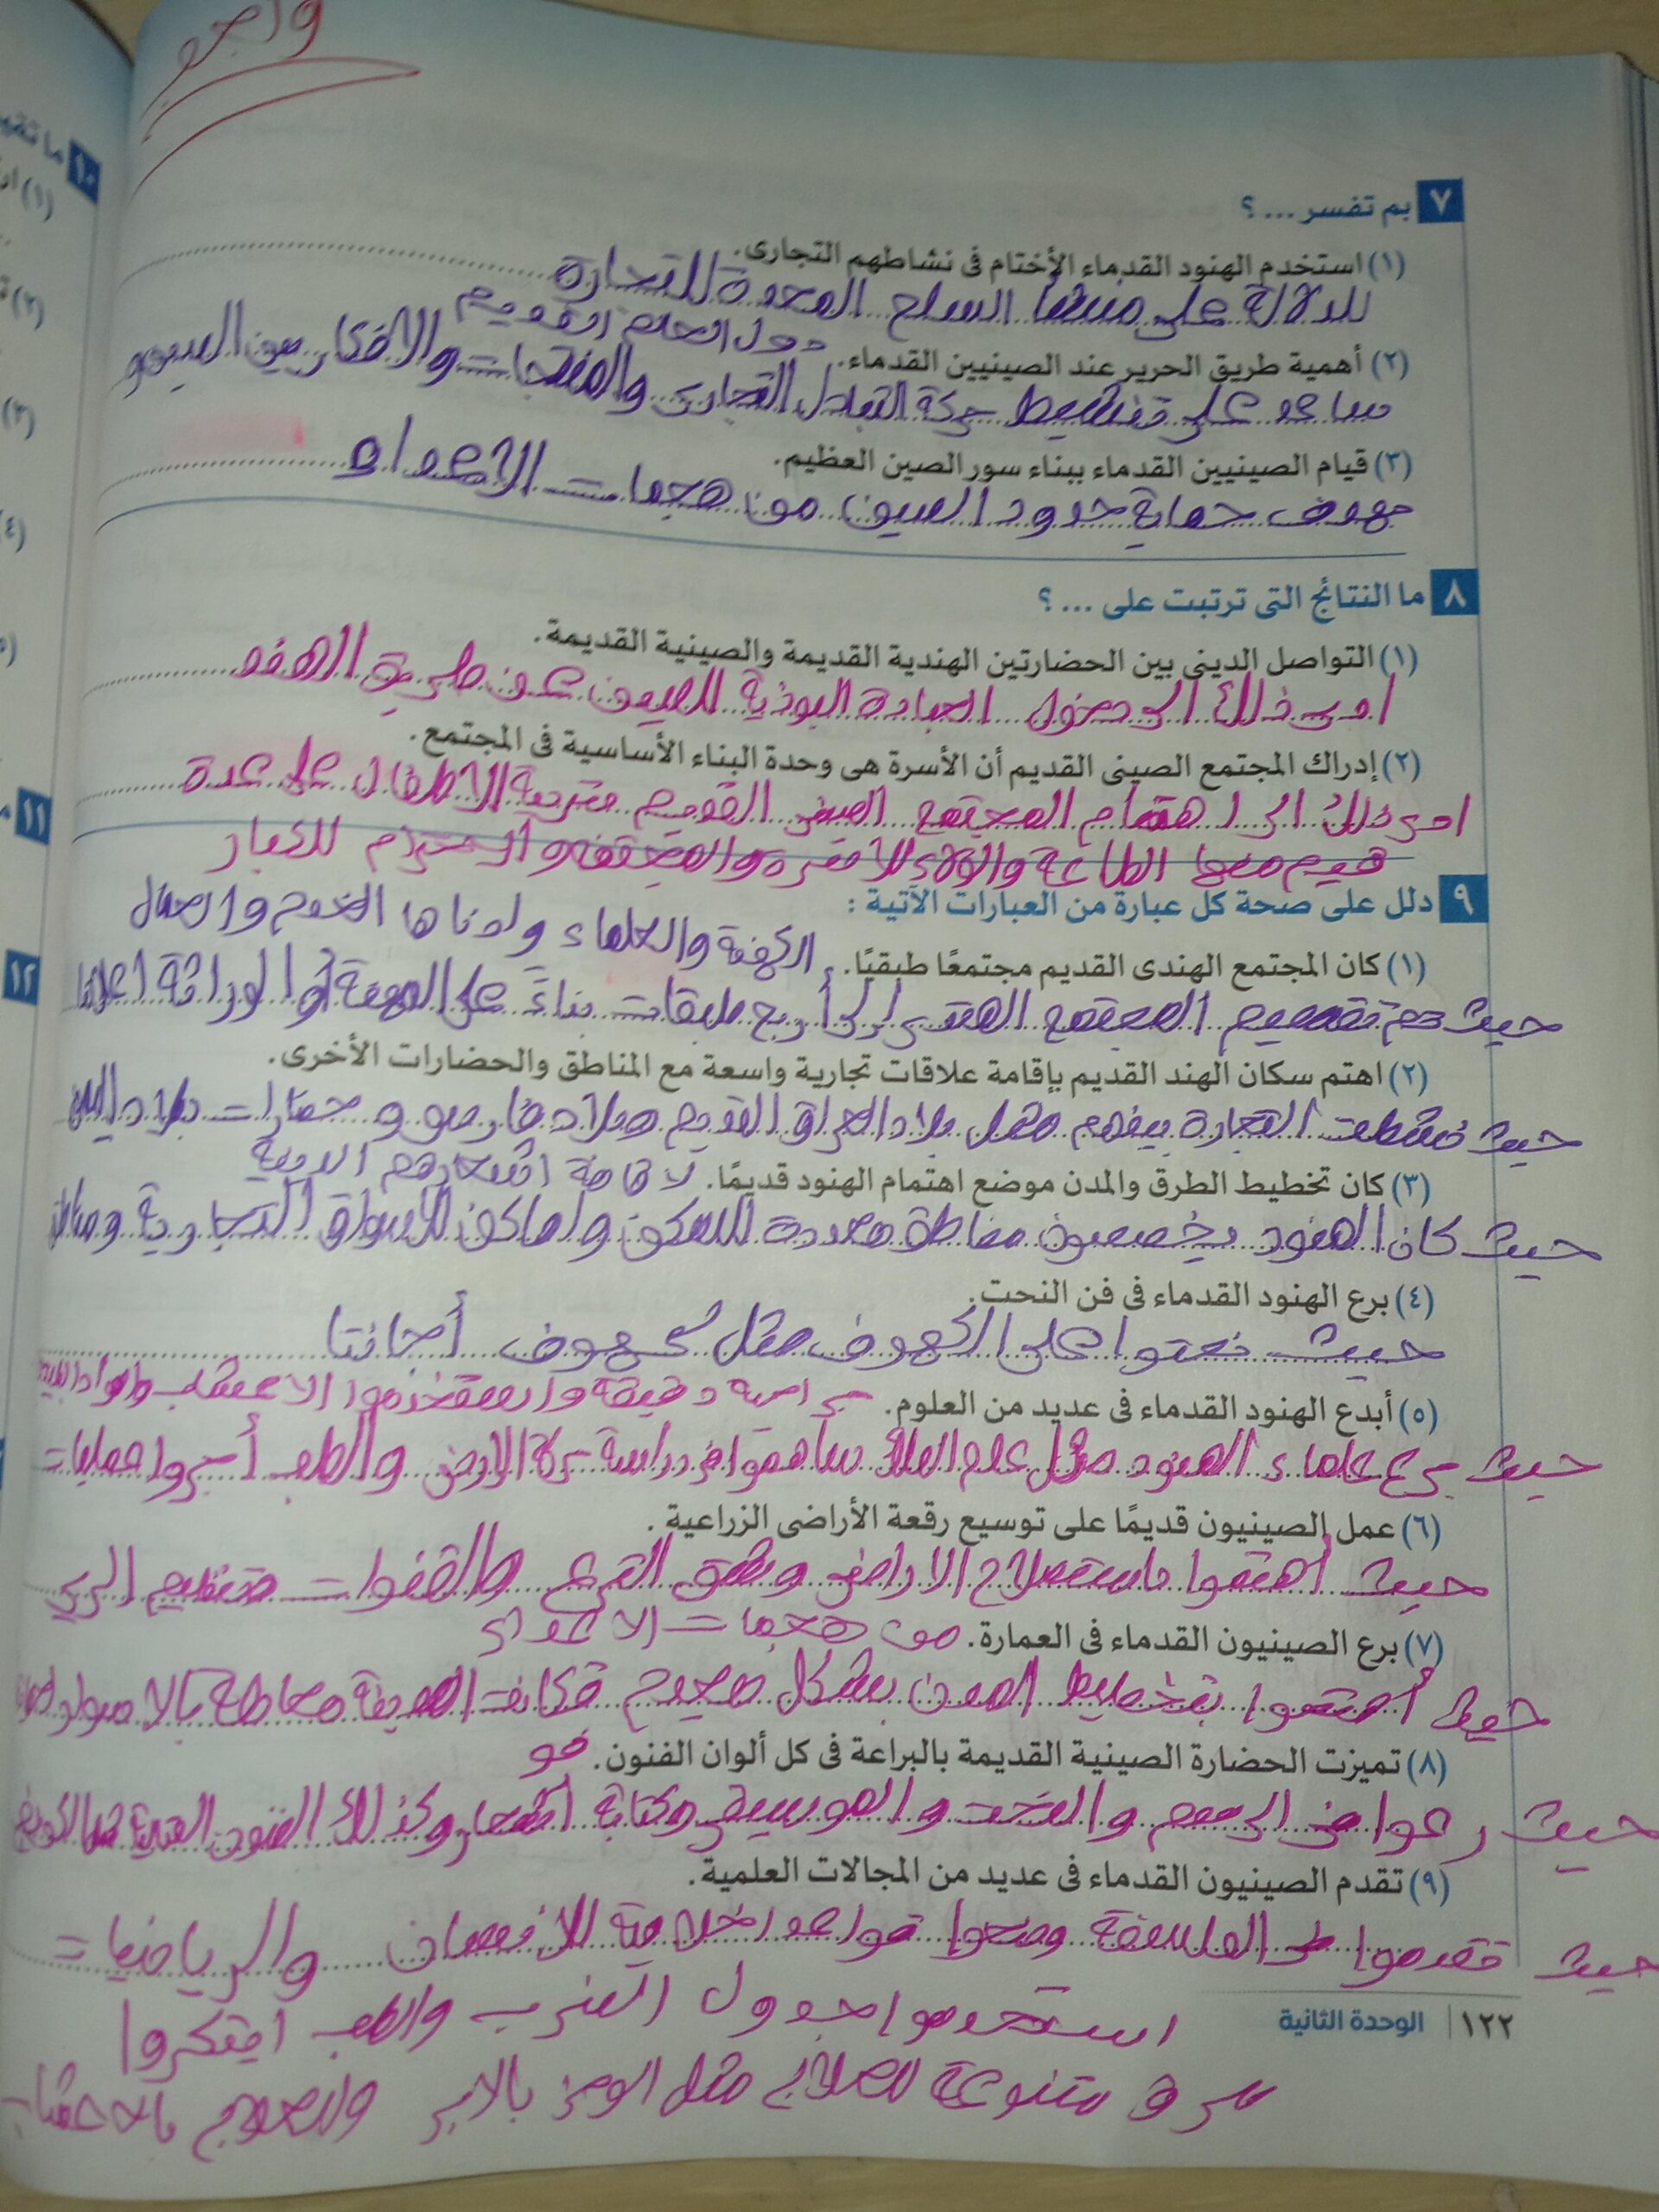 واجب
٧ بم تفسر ... ؟
(١) استخدم الهنود القدماء الأختام فى نشاطهم التجارى.
للدلالة على منشأ السلع المعدة للتجارة
دول العالم القديم
(٢) أهمية طريق الحرير عند الصينيين القدماء.
ساعد على تنشيط حركة التبادل التجارى والمنتجات والافكار بين الصين و
(٣) قيام الصينيين القدماء ببناء سور الصين العظيم.
بهدف حماية حدود الصين من هجمات الاعداء
٨ ما النتائج التى ترتبت على ... ؟
(١) التواصل الدينى بين الحضارتين الهندية القديمة والصينية القديمة.
ادى ذلك الى دخول العبادة البوذية للصين عن طريق الهند
(٢) إدراك المجتمع الصينى القديم أن الأسرة هى وحدة البناء الأساسية فى المجتمع.
ادى ذلك الى اهتمام المجتمع الصينى القديم بتربية الاطفال على عدة
قيم منها الطاعة والولاء للأسرة والمجتمع و للكبار
٩ دلل على صحة كل عبارة من العبارات الآتية :
الكهنة والعلماء وادناها الخدم و
(١) كان المجتمع الهندى القديم مجتمعًا طبقيًا.
حيث تم تقسيم المجتمع الهندى إلى أربع طبقات بناءً على المهنة أو الوراثة اعلاها
(٢) اهتم سكان الهند القديم بإقامة علاقات تجارية واسعة مع المناطق والحضارات الأخرى.
حيث نشطت التجارة بينهم مثل بلاد العراق القديم وبلاد فارس و حضارات بلاد اليمن
لاقامة الدينية
(٣) كان تخطيط الطرق والمدن موضع اهتمام الهنود قديمًا.
حيث كان الهنود يخصصون مناطق محددة للسكن واماكن للأسواق التجارية ومناطق
(٤) برع الهنود القدماء فى فن النحت.
حيث نحتوا على الكهوف مثل كهوف أجانتا
جراحية دقيقة واستخدموا الاعشاب والمواد الطبيعية
(٥) أبدع الهنود القدماء فى عديد من العلوم.
حيث برع علماء الهنود مثل علم الفلك ساهموا فى دراسة حركة الارض والطب أجروا عمليات
(٦) عمل الصينيون قديمًا على توسيع رقعة الأراضى الزراعية.
حيث اهتموا باستصلاح الاراضى وشق الترع والقنوات وتنظيم الرى
من هجمات الاعداء
(٧) برع الصينيون القدماء فى العمارة.
حيث اهتموا بتخطيط المدن بشكل فكانت المدينة محاطة بالاسوار لحمايتها
(٨) تميزت الحضارة الصينية القديمة بالبراعة فى كل ألوان الفنون.
حيث برعوا فى الرسم والنحت والموسيقى وكتابة اشعار وكذلك الفنون
(٩) تقدم الصينيون القدماء فى عديد من المجالات العلمية.
حيث تقدموا فى الفلسفة وضعوا قواعد اخلاقية للانسان والرياضيات
استخدموا جدول الضرب والطب ابتكروا
طرق متنوعة للعلاج مثل الوخز بالابر والعلاج بالاعشاب
١٢٢ | الوحدة الثانية
١٠
(١)
(٢)
(٣)
(٤)
١١
١٢